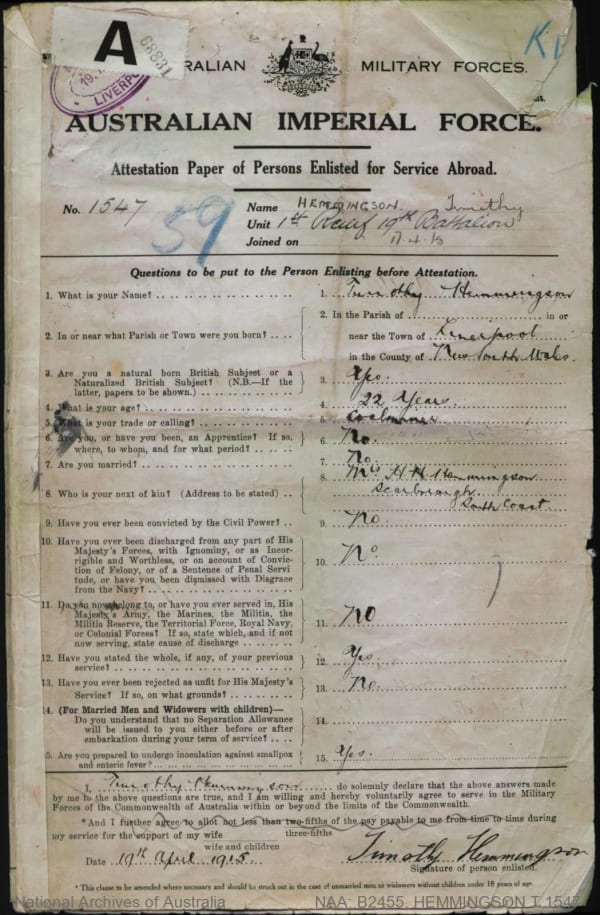 A
68831
19.
LIVERPO
K
RALIAN MILITARY FORCES.
AUSTRALIAN IMPERIAL FORCE.
Attestation Paper of Persons Enlisted for Service Abroad.
No. 1547 Name HEMMINGSON. Timothy
59 Unit 1st Reinf 19th Battalion
Joined on 17.4.15
Questions to be put to the Person Enlisting before Attestation.
1. What is your Name? 1. Timothy Hemmingson
2. In or near what Parish or Town were you born? 2. In the Parish of in or
near the Town of Liverpool
in the County of New South Wales.
3. Are you a natural born British Subject or a
Naturalized British Subject? (N.B.—If the
latter, papers to be shown.) 3. Yes.
4. What is your age? 4. 22 Years.
5. What is your trade or calling? 5. Coalminer
6. Are you, or have you been, an Apprentice? If so,
where, to whom, and for what period? 6. No.
7. Are you married? 7. No.
8. Who is your next of kin? (Address to be stated) 8. Mrs H. H. Hemmingson
Scarbrough.
South Coast.
9. Have you ever been convicted by the Civil Power? 9. No.
10. Have you ever been discharged from any part of His
Majesty's Forces, with Ignominy, or as Incor-
rigible and Worthless, or on account of Convic-
tion of Felony, or of a Sentence of Penal Servi
tude, or have you been dismissed with Disgrace
from the Navy? 10. No.
11. Do you now belong to, or have you ever served in, His
Majesty's Army, the Marines, the Militia, the
Militia Reserve, the Territorial Force, Royal Navy,
or Colonial Forces? If so, state which, and if not
now serving, state cause of discharge 11. NO
12. Have you stated the whole, if any, of your previous
service? 12. Yes.
13. Have you ever been rejected as unfit for His Majesty's
Service? If so, on what grounds? 13. No.
4. (For Married Men and Widowers with children)—
Do you understand that no Separation Allowance
will be issued to you either before or after
embarkation during your term of service? 14.
5. Are you prepared to undergo inoculation against smallpox
and enteric fever? 15. Yes.
I, Timothy Hemmingson do solemnly declare that the above answers made
by me to the above questions are true, and I am willing and hereby voluntarily agree to serve in the Military
Forces of the Commonwealth of Australia within or beyond the limits of the Commonwealth.
*And I further agree to allot not less than two-fifths of the pay payable to me from time to time during
three-fifths
my service for the support of my wife
wife and children
Date 19th April 1915 Timothy Hemmingson
Signature of person enlisted.
* This clause to be amended where necessary and should be struck out in the case of unmarried men or widowers without children under 18 years of age.
National Archives of Australia NAA: B2455, HEMMINGSON T 1547